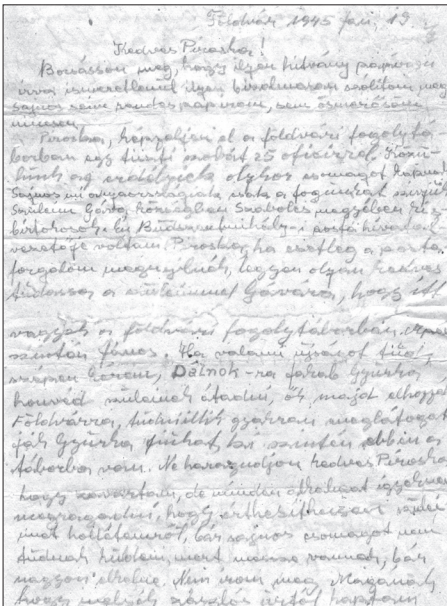 Földvár 1945 jan. 19.
Kedves Piroska!
Bocsásson meg, hogy ilyen hitvány papiroson
írva ismeretlenül ilyen bizalmasan szólítom, meg
sajnos sem rendes papirom, sem
nincsen.
Piroska, képzeljen el a földvári fogolytá-
borban egy tiszti szobát 25 oficirral. Közü-
lünk az erdélyiek olykor csomagot kapnak.
Sajnos mi magyarországiak, mióta a
Szüleim Gáva községben Szabolcs megyében kis
birtokosok. Én postahivatal
vezetője voltam. Piroska, ha esetleg a posta-
forgalom megnyílnék, legyen olyan kedves
tudassa a szüleimmel Gávára, hogy itt
vagyok a földvári fogolytáborban,
János. Ha valami újságot tud,
szépen kérem, Dálnok-ra Jakab Gyurka
honved szüleinek átadni, ők majd elhozzák
Földvárra, tudniillik gyakran meglátogat-
ják Gyurka fiukat, ki szintén ebben a
táborba van. Ne haragudjon kedves Piroska
hogy zavartam, de minden alkalmat igyekszem
megragadni, hogy értesíthessem szülei-
met hollétemről, bár sajnos csomagot nem
tudnak küldeni, mert messze vannak, bár
nagyon elkelne. Nem írom meg Magának
hogy melyik zászlós úrtól kaptam